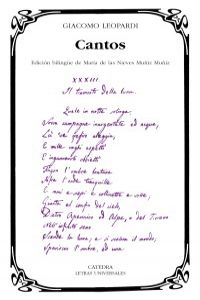 GIACOMO LEOPARDI
Cantos
Edición bilingüe de María de las Nieves Muñiz Muñiz
XXXIII
Il tramonto della luna.
Quale in notte solinga,
Sovra campagne inargentate ed acque,
Là 've zefiro aleggia,
E mille vaghi aspetti
E ingannevoli obbietti
Fingon l'ombre lontane
Infra l'onde tranquille
E rami e siepi e collinette e ville;
Giunta al confin del cielo,
Dietro Apennino od Alpe, o del Tirreno
Nell'infinito seno
Scende la luna; e si scolora il mondo;
Spariscon l'ombre, ed una
CÁTEDRA
LETRAS UNIVERSALES